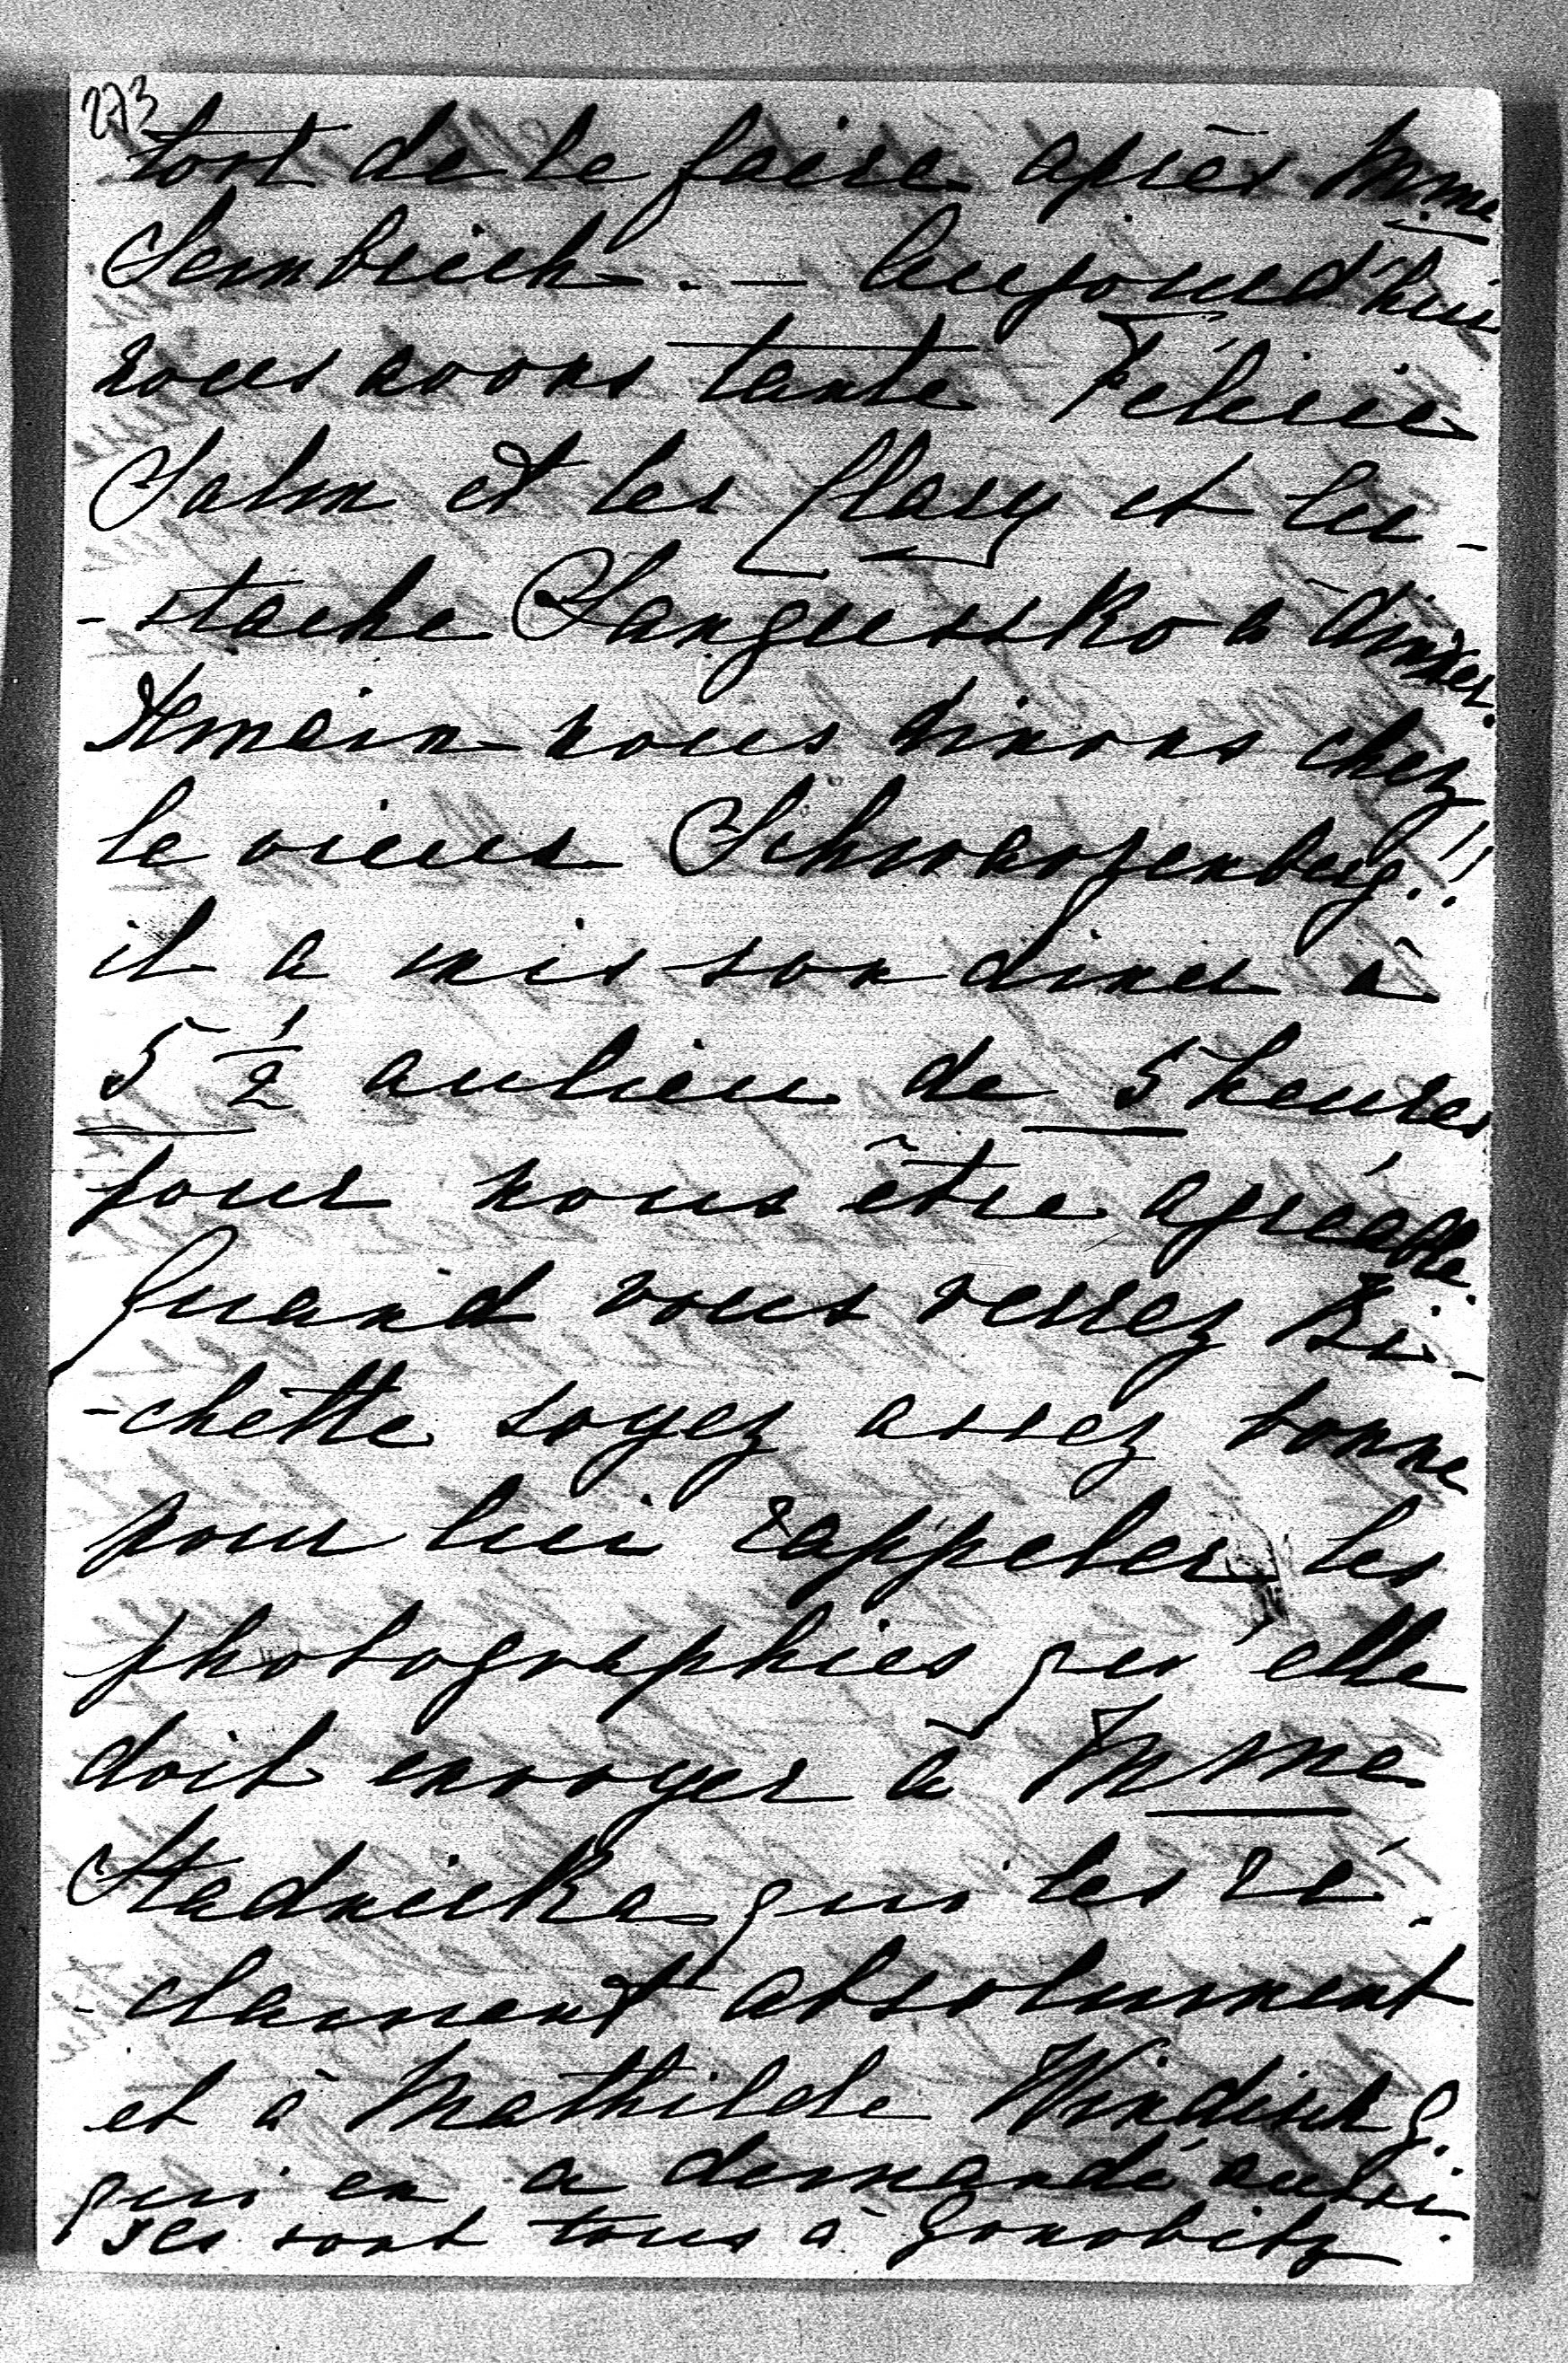 273
tort de le faire après Mme
Sembrich. — Aujourd'hui
nous avons tante Félicie
Salm et les Clary et Eu-
-stache Sanguszko a diner.
Demain nous dinons chez
le vieux Schwarzenberg!!
il a mis son diner à
5 1/2 aulieu de 5 heures
pour nous être agréable.
Quand vous verrez Bi-
-chette soyez assez bonne
pour lui rappeler les
photographies qu'elle
doit envoyer à Mme
Stadnicka qui les ré-
-clament absolument
et à Mathilde Windischg.
qui en a demandé aussi.
Ils sont tous à Gonobitz